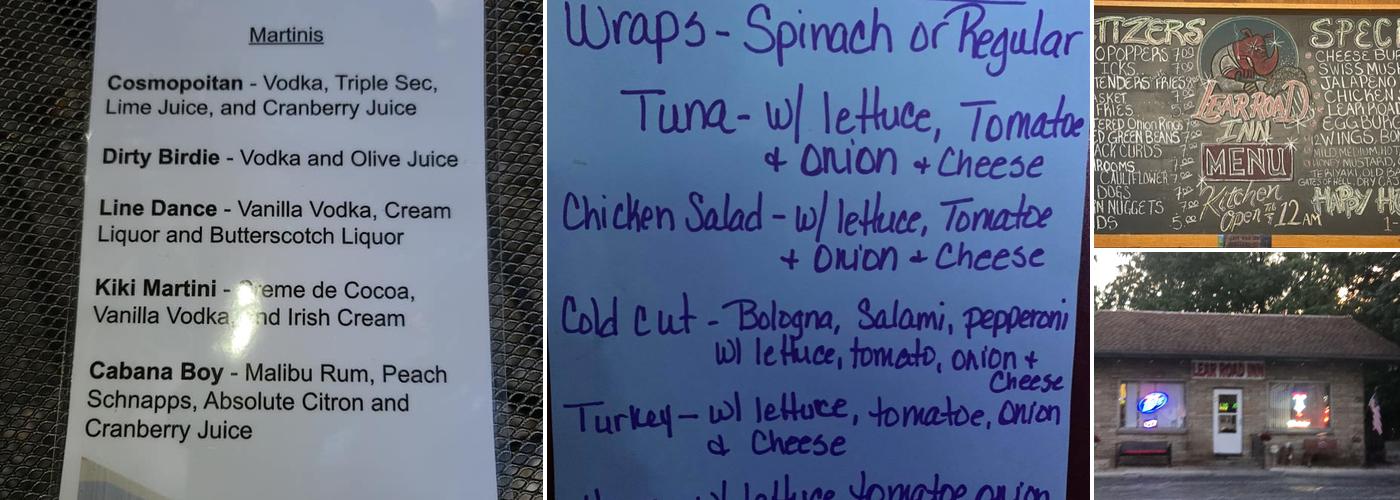 Martinis
Cosmopoitan - Vodka, Triple Sec,
Lime Juice, and Cranberry Juice
Dirty Birdie - Vodka and Olive Juice
Line Dance - Vanilla Vodka, Cream
Liquor and Butterscotch Liquor
Kiki Martini - Creme de Cocoa,
Vanilla Vodka, and Irish Cream
Cabana Boy - Malibu Rum, Peach
Schnapps, Absolute Citron and
Cranberry Juice
Wraps - Spinach or Regular
Tuna - w/ lettuce, Tomatoe
& Onion + Cheese
Chicken Salad - w/ lettuce, Tomatoe
+ Onion + Cheese
Cold cut - Bologna, Salami, pepperoni
w/ lettuce, tomato, onion +
Cheese
Turkey - w/ lettuce, tomatoe, onion
& Cheese
w/ lettuce tomatoe onion
TIZERS
POPPERS 7.00
ICKS
TENDERS FRIES
ASKET
FRIES
TERED Onion Rings
ED GREEN BEANS 7.00
ACK CURDS
ROOMS
CAULIFLOWER 7.00
DOGS
N NUGGETS 7.00
DS 5.00
LEAR ROAD
INN
MENU
Kitchen
Open 12AM
SPECI
CHEESE BUR
SWISS MUSH
JALAPENO
CHICKEN
LEAR ROAD
WINGS, B
MILD MEDIUM HOT
HONEY MUSTARD
TERIYAKI, OLD
HAPPY H
LEAR ROAD INN